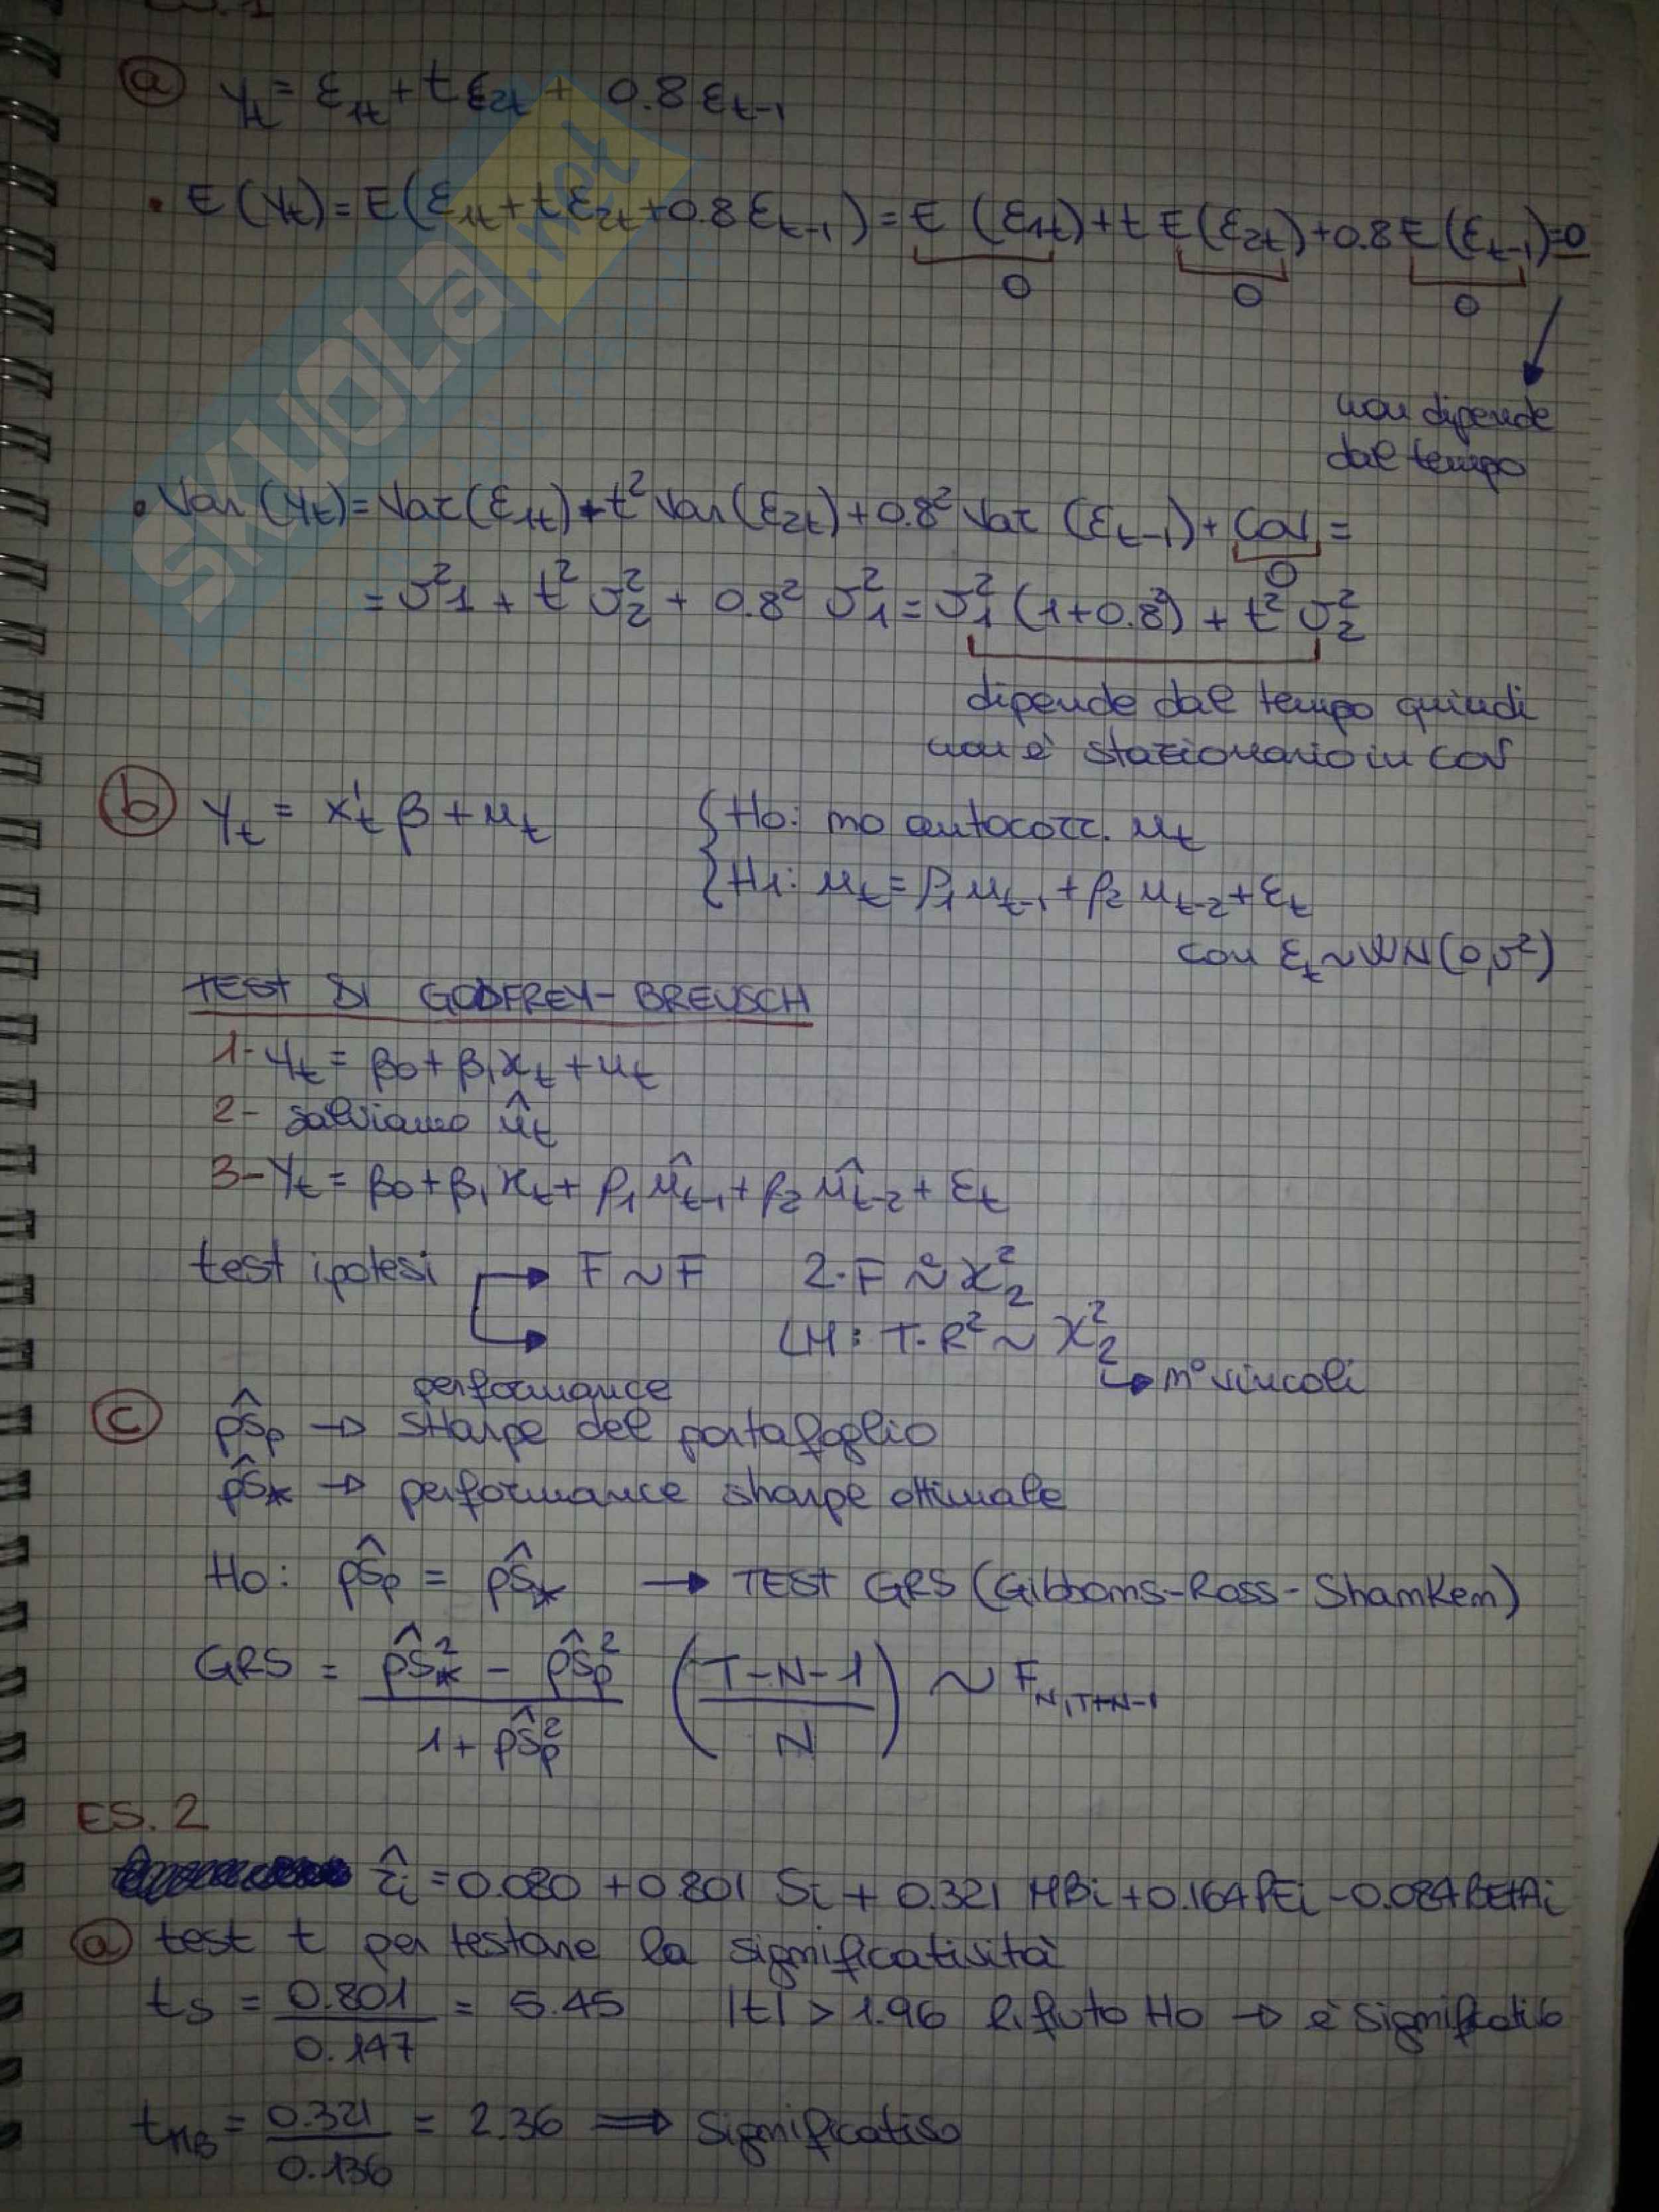 ⓐ yt = ε1t + tε2t + 0.8 εt-1
• E(yt) = E(ε1t + tε2t + 0.8 εt-1) = E(ε1t) + t E(ε2t) + 0.8 E(εt-1) = 0
0 0 0
non dipende
dal tempo
• Var(yt) = Var(ε1t) + t² Var(ε2t) + 0.8² Var(εt-1) + Cov =
0
= σ²1 + t² σ²2 + 0.8² σ²1 = σ²1 (1+0.8²) + t² σ²2
dipende dal tempo quindi
non è stazionario in cov
ⓑ yt = x't β + ut { H0: no autocorr. ut
{ H1: ut = ρ1 ut-1 + ρ2 ut-2 + εt
con εt ~ WN(0,σ²)
TEST DI GODFREY-BREUSCH
1- yt = β0 + β1 xt + ut
2- salviamo ût
3- yt = β0 + β1 xt + ρ1 ût-1 + ρ2 ût-2 + εt
test ipotesi → F ~ F 2·F ~ᵃ χ²2
→ LM: T·R² ~ χ²2
↳ n° vincoli
performance
ⓒ p̂sp → sharpe del portafoglio
p̂s* → performance sharpe ottimale
H0: p̂sp = p̂s* → TEST GRS (Gibbons-Ross-Shanken)
GRS = (p̂s*² - p̂sp²) / (1 + p̂sp²) ((T-N-1) / N) ~ F N,T-N-1
ES. 2
r̂i = 0.080 + 0.801 Si + 0.321 MBi + 0.164 PEi - 0.084 BETAi
ⓐ test t per testare la significatività
tS = 0.801 / 0.147 = 5.45 |t| > 1.96 Rifiuto H0 → è significativo
tMB = 0.321 / 0.136 = 2.36 ⟹ significativo
SKUOLA.net